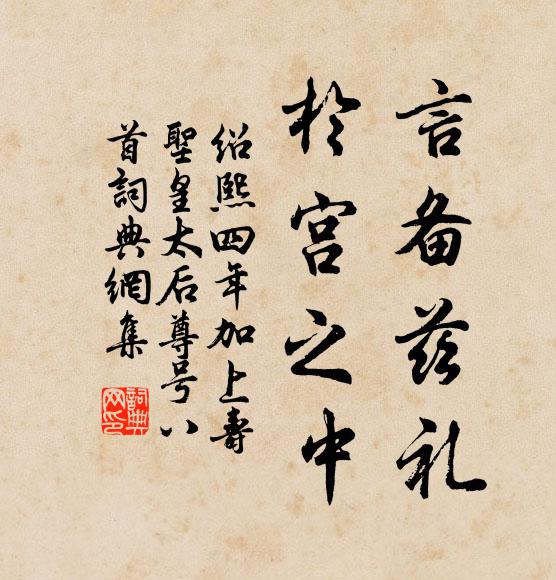 言备兹礼
於宫之中
绍熙四年加上寿
聖皇太后尊号八
首詞典網集
詞典网印